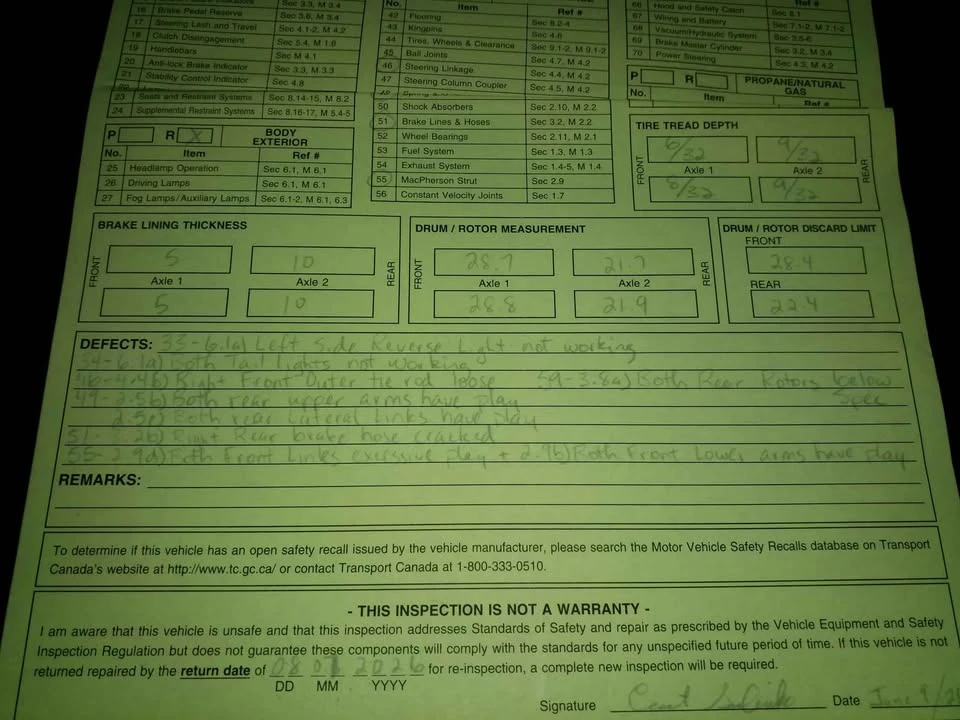 16 Brake Pedal Reserve Sec 3.6, M 3.4
17 Steering Lash and Travel Sec 4.1-2, M 4.2
18 Clutch Disengagement Sec 5.4, M 1.6
19 Handlebars Sec M 4.1
20 Anti-lock Brake Indicator Sec 3.3, M 3.3
21 Stability Control Indicator Sec 4.8
23 Seats and Restraint Systems Sec 8.14-15, M 8.2
24 Supplemental Restraint Systems Sec 8.16-17, M 5.4-5
P R X BODY EXTERIOR
No. Item Ref #
25 Headlamp Operation Sec 6.1, M 6.1
26 Driving Lamps Sec 6.1, M 6.1
27 Fog Lamps/Auxiliary Lamps Sec 6.1-2, M 6.1, 6.3
No. Item Ref #
42 Flooring Sec 8.2-4
43 Kingpins Sec 4.6
44 Tires, Wheels & Clearance Sec 9.1-2, M 9.1-2
45 Ball Joints Sec 4.7, M 4.2
46 Steering Linkage Sec 4.4, M 4.2
47 Steering Column Coupler Sec 4.5, M 4.2
50 Shock Absorbers Sec 2.10, M 2.2
51 Brake Lines & Hoses Sec 3.2, M 2.2
52 Wheel Bearings Sec 2.11, M 2.1
53 Fuel System Sec 1.3, M 1.3
54 Exhaust System Sec 1.4-5, M 1.4
55 MacPherson Strut Sec 2.9
56 Constant Velocity Joints Sec 1.7
66 Hood and Safety Catch Sec 8.1
67 Wiring and Battery Sec 7.1-2, M 7.1-2
68 Vacuum/Hydraulic System Sec 3.5-6
69 Brake Master Cylinder Sec 3.2, M 3.4
70 Power Steering Sec 4.3, M 4.2
P R PROPANE/NATURAL GAS
No. Item Ref #
TIRE TREAD DEPTH
FRONT 6/32 9/32 REAR
Axle 1 Axle 2
8/32 9/32
BRAKE LINING THICKNESS
FRONT 5 10 REAR
Axle 1 Axle 2
5 10
DRUM / ROTOR MEASUREMENT
FRONT 28.7 21.7 REAR
Axle 1 Axle 2
28.8 21.9
DRUM / ROTOR DISCARD LIMIT
FRONT
28.4
REAR
22.4
DEFECTS: 33-6.1a) Left Side Reverse Light not working
34-6.1a) Both Tail lights not working
46-4.4b) Right Front Outer tie rod loose 59-3.8a) Both Rear Rotors below
49-2.5b) Both rear upper arms have play Spec
2.5e) Both rear Lateral Links have play
51-3.2b) Right Rear brake hose cracked
55-2.9d) Both Front Links excessive play + 2.9b) Both Front Lower arms have play
REMARKS:
To determine if this vehicle has an open safety recall issued by the vehicle manufacturer, please search the Motor Vehicle Safety Recalls database on Transport
Canada's website at http://www.tc.gc.ca/ or contact Transport Canada at 1-800-333-0510.
- THIS INSPECTION IS NOT A WARRANTY -
I am aware that this vehicle is unsafe and that this inspection addresses Standards of Safety and repair as prescribed by the Vehicle Equipment and Safety
Inspection Regulation but does not guarantee these components will comply with the standards for any unspecified future period of time. If this vehicle is not
returned repaired by the return date of 08 07 2026 for re-inspection, a complete new inspection will be required.
DD MM YYYY
Signature Date June 9/2